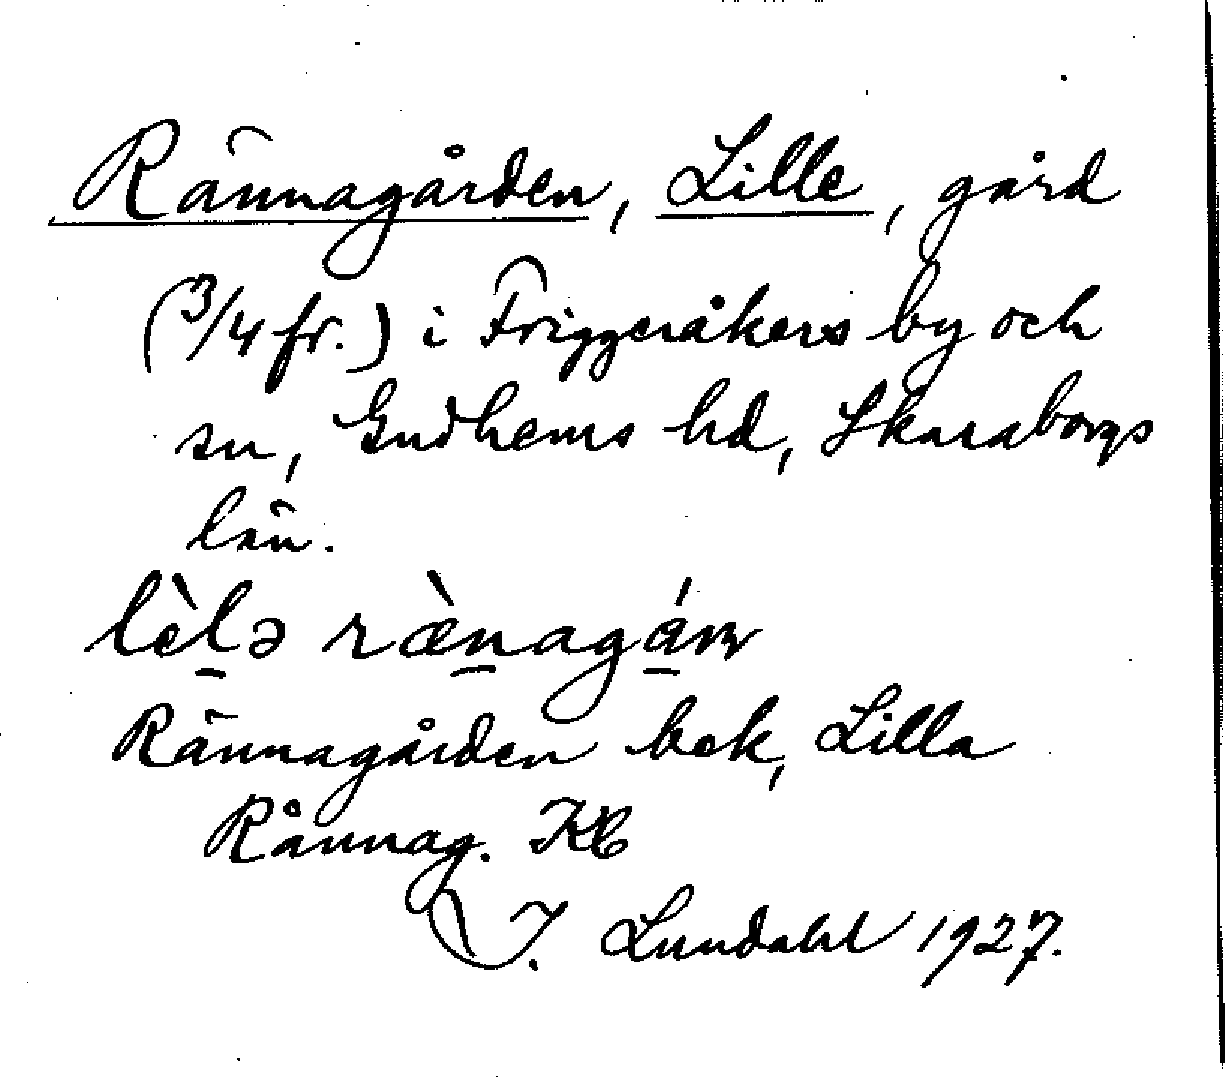 Rännagården, Lille, gård
(3/4 fr.) i Friggeråkers by och
sn, Gudhems hd, Skaraborgs
län.
lèl̠ə ræ̀n̠agá̠ɳ
Rännagården bek, Lilla
Rånnag. KB
I. Lundahl 1927.